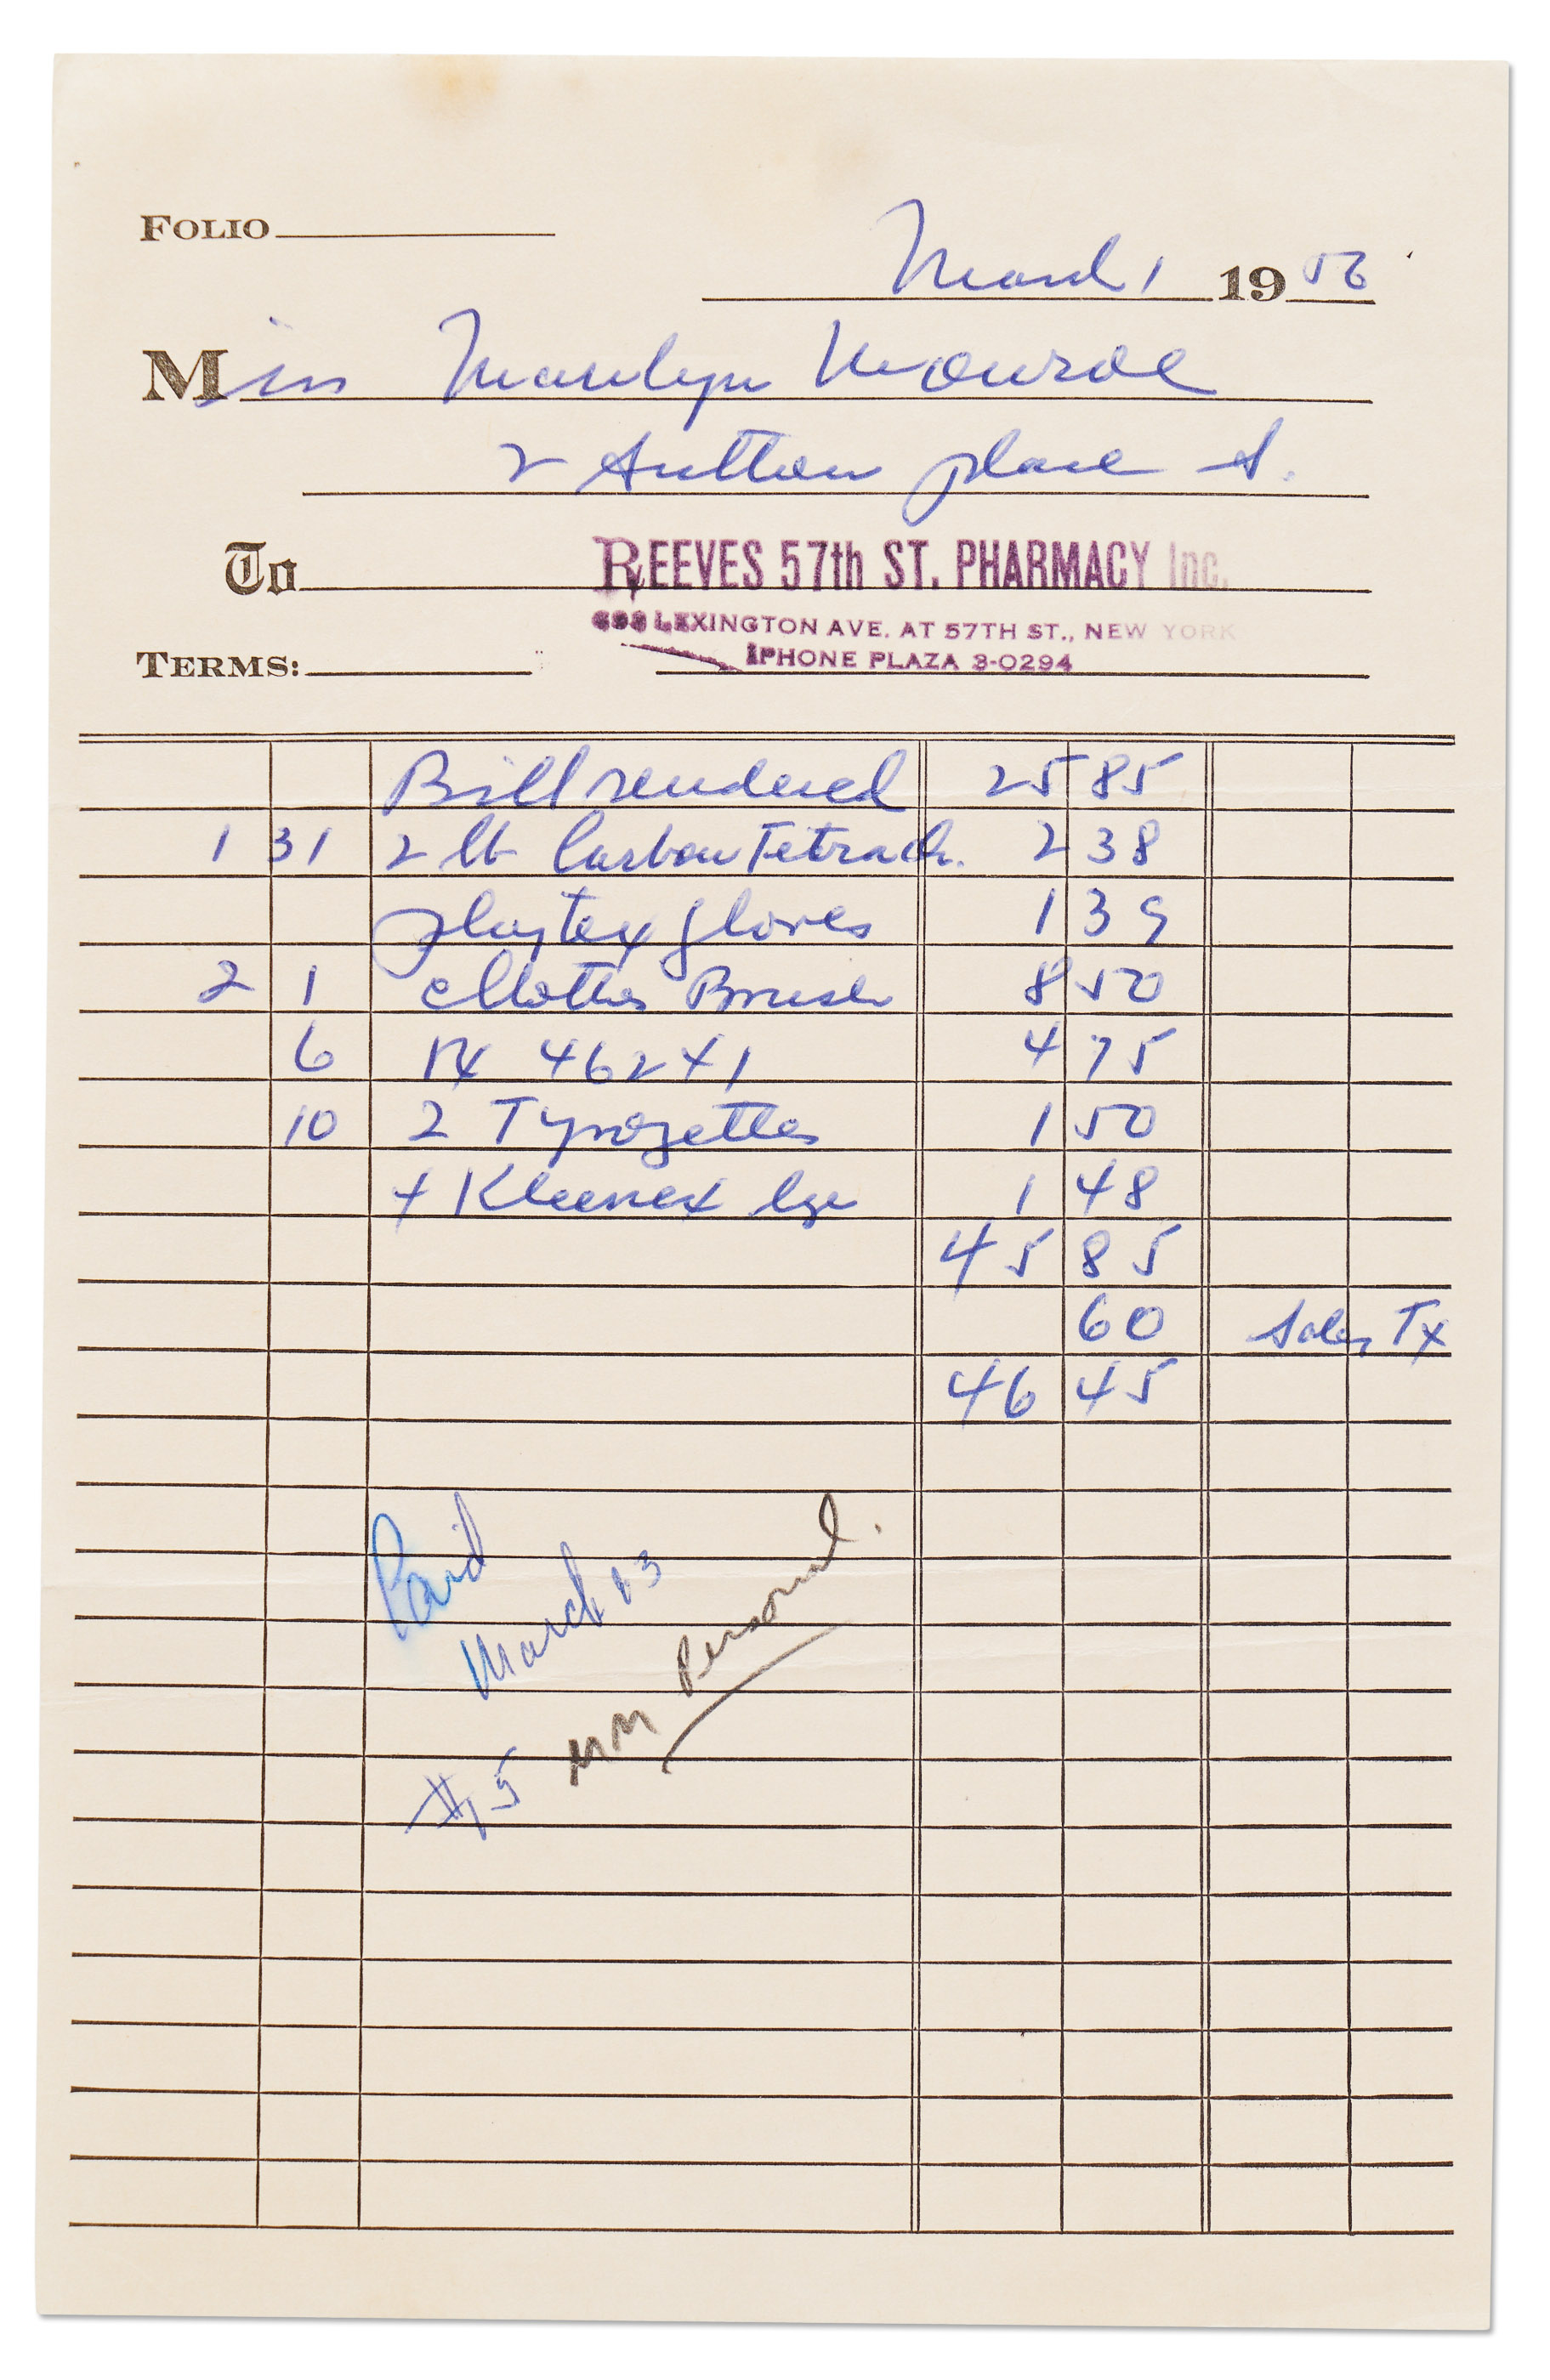 FOLIO
March 1 19 56
Miss Marilyn Monroe
2 Sutton place S.
To REEVES 57th ST. PHARMACY Inc.
LEXINGTON AVE. AT 57TH ST., NEW YORK
TERMS: PHONE PLAZA 3-0294
Bill rendered 25 85
1 31 2 lb Carbon Tetrach. 2 38
playtex gloves 1 39
2 1 Clothes Brush 8 50
6 RX 46241 4 75
10 2 Tyrozettes 1 50
4 Kleenex lge 1 48
45 85
60 Sales Tx
46 45
Paid
March 13
#5 MM Personal.